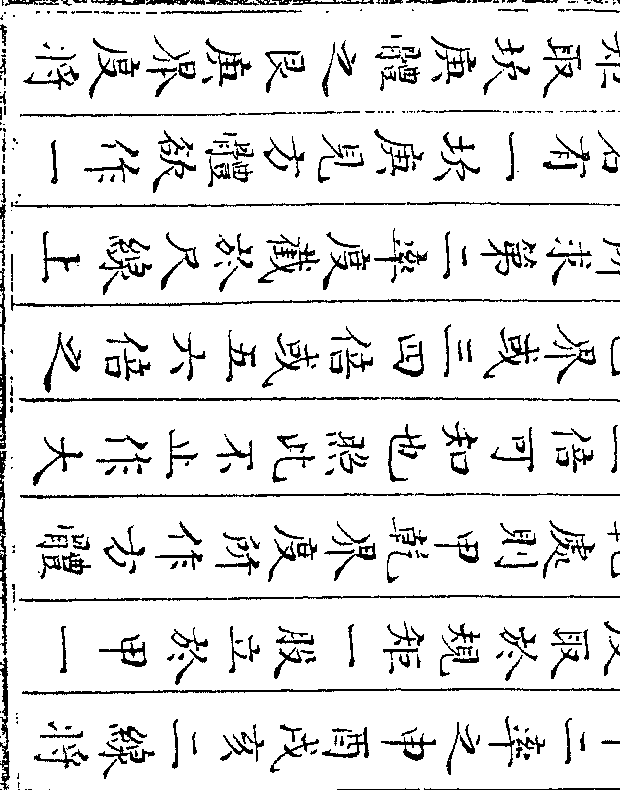 二率之申酉戌亥二線將
取於規矩一股立於甲一
處則甲乾界度所作方體
倍可知也照此不止作大
界或三四倍或五六倍之
求第二率度截於尺線上
有一坎廣見方體欲作一
取坎廣體之艮廣界度將